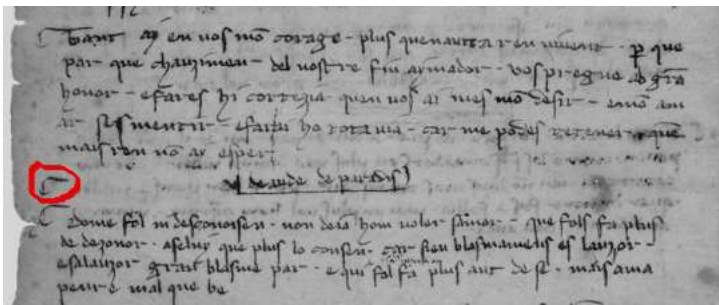 Tant ay en vos mo corage · plus quenautra ren vivent · per que
par que chauzimen · del vostre fin aymador · vos pregue ab gra
honor · e fares hi cortezia quen vos ai mes mo desir · e vos am
ar ses mentir · e farai ho tota via · car me podes retener · que
mais ren no ay esper
de aude de paradis
Dome fol ni desconoisen · non deia hom voler sauzor · que fols fa plus
de dezonor · aseluy que plus lo consen · car sieu blasmamens es lauzor
e sa lauzor grant blasme par · e qui fol fa plus aut de se · mais ama
penre mal que be